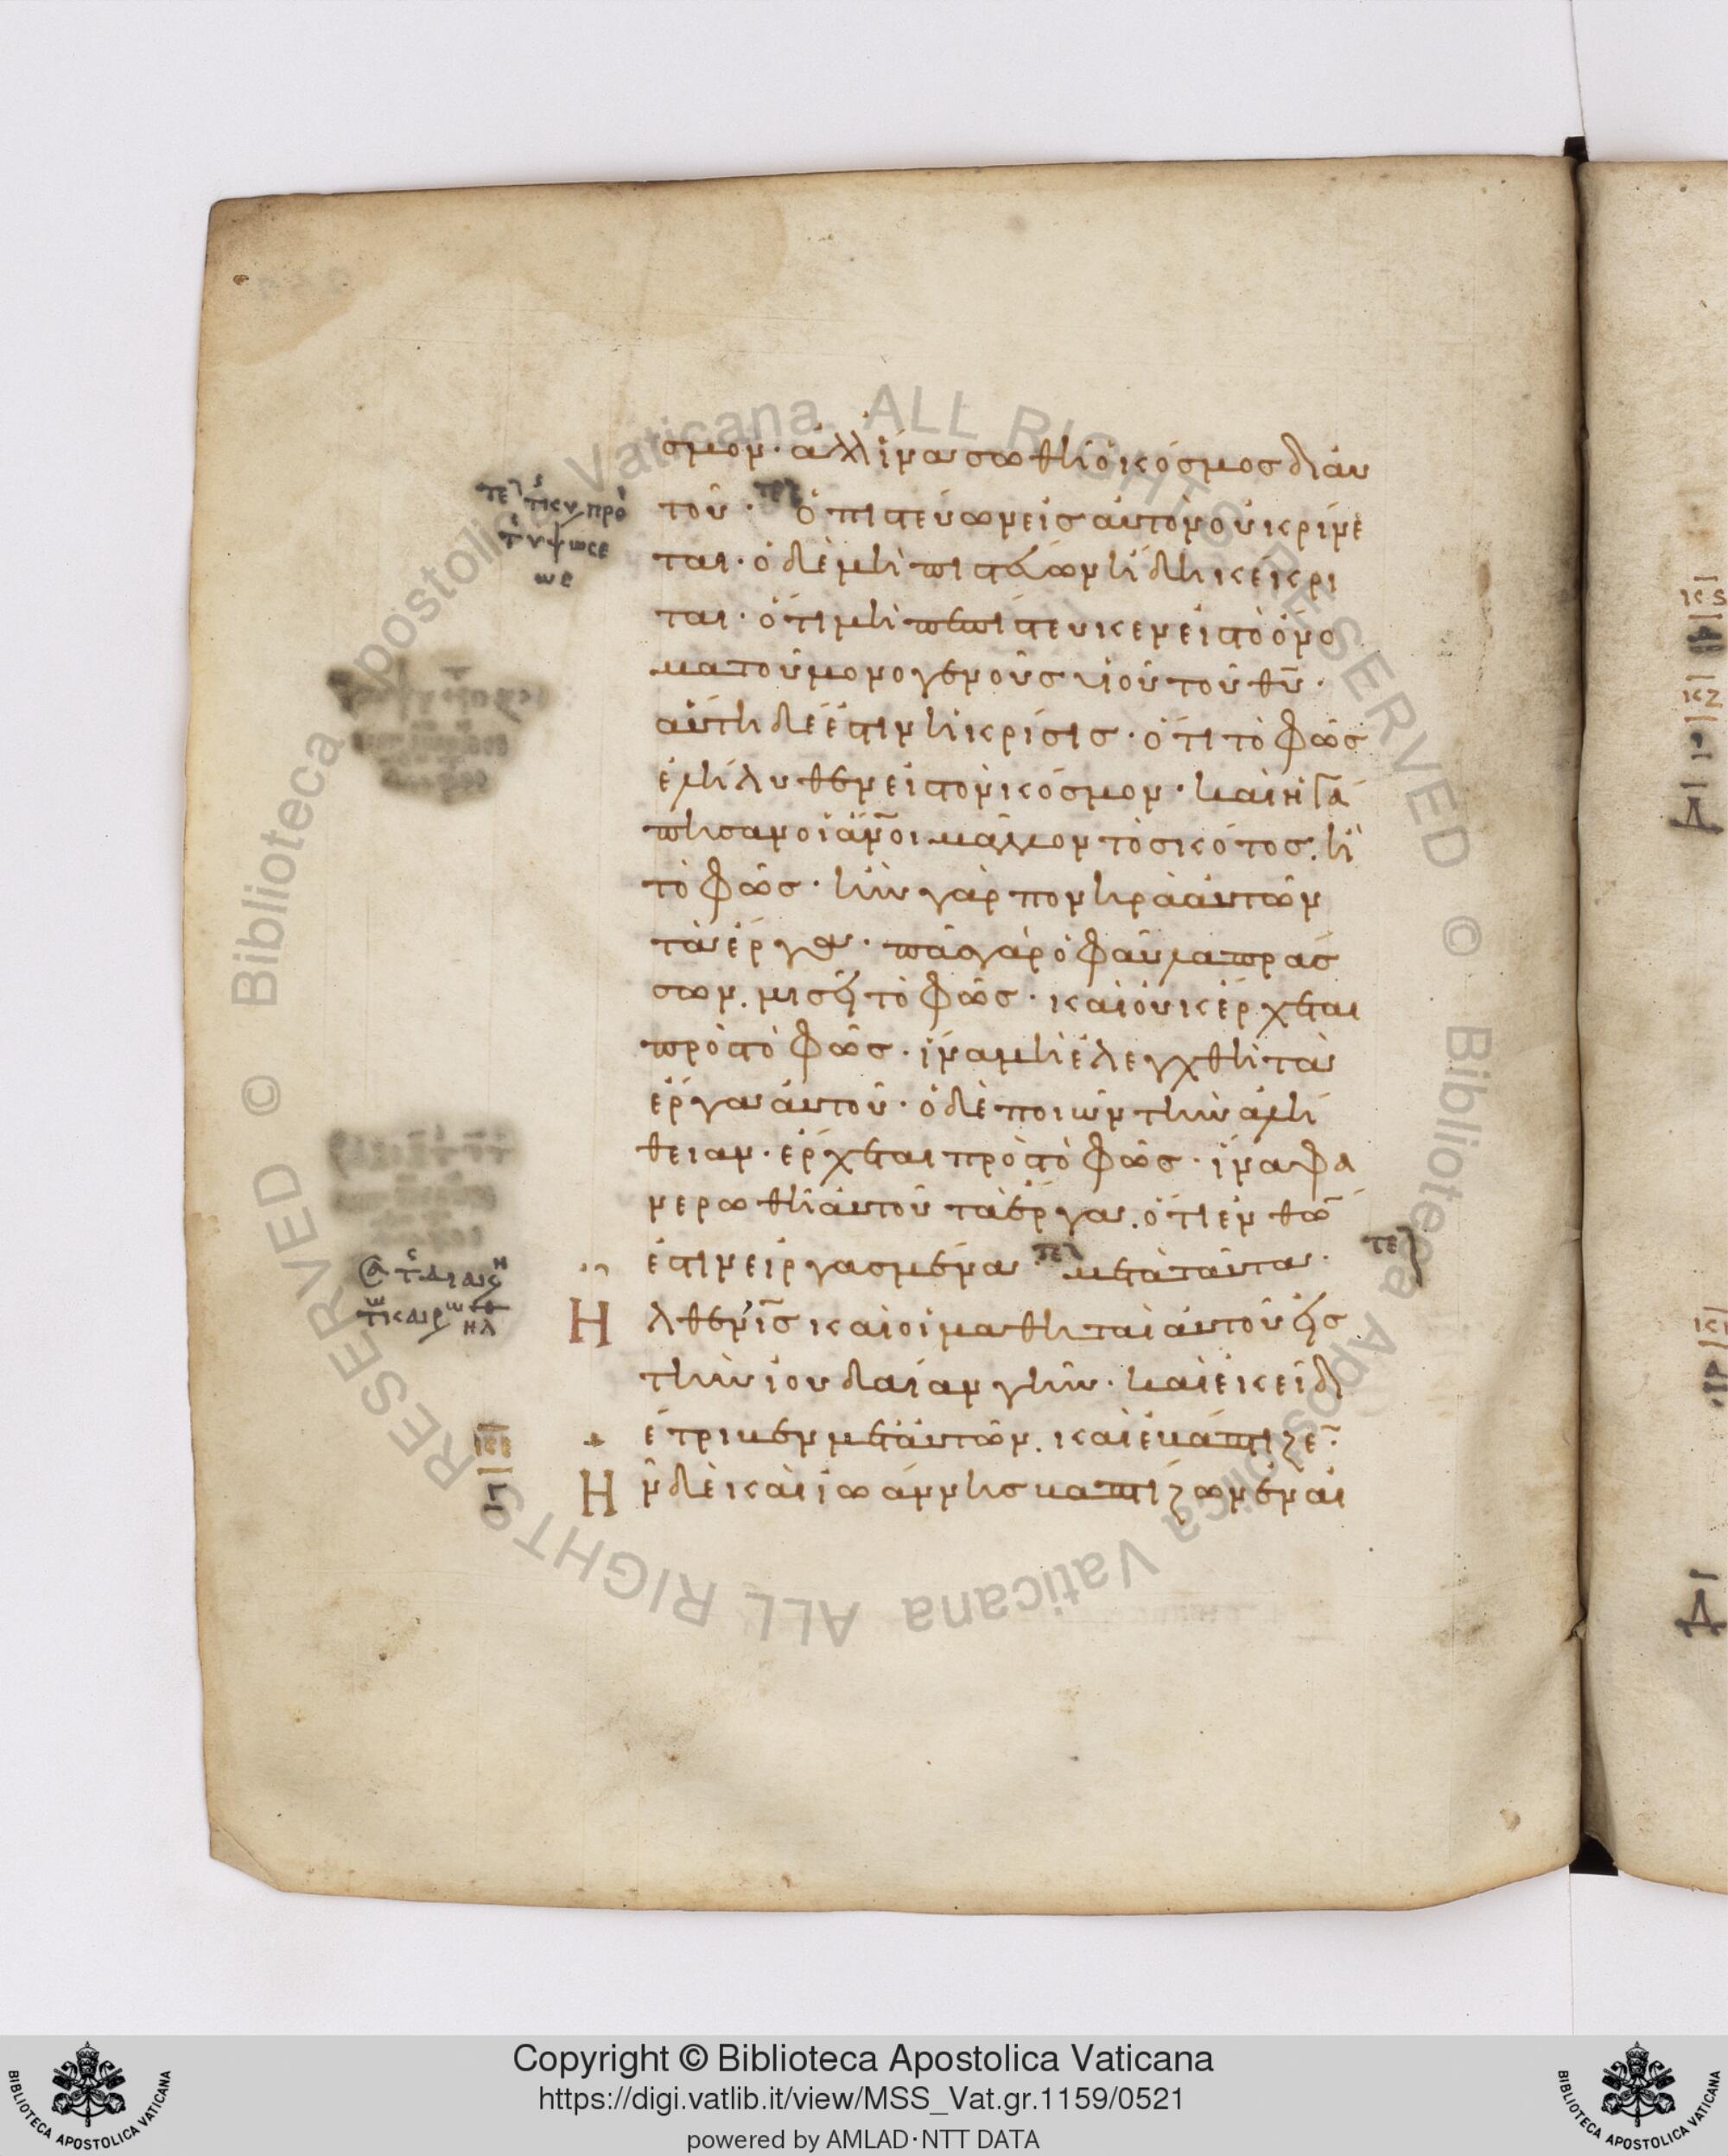 σμον· ἀλλ ἵνα σωθῆ ὁ κόσμος δι αυ
τοῦ· τε ὁ πιστεύων εἰς αὐτὸν οὐ κρίνε
ται· ὁ δὲ μὴ πιστεύων ἤδη κέκρι
ται· ὅτι μὴ πεπίστευκεν εἰς τὸ ὄνο
μα τοῦ μονογενοῦς υἱοῦ τοῦ θῦ·
αὕτη δέ ἐστιν ἡ κρίσις· ὅτι τὸ φῶς
ἐλήλυθεν εἰς τὸν κόσμον· καὶ ἠγά
πησαν οἱ ἄνοι μᾶλλον τὸ σκότος. ἢ
τὸ φῶς· ἦν γὰρ πονηρὰ αὐτῶν
τὰ ἔργα· πᾶς γὰρ ὁ φαῦλα πράσ
σων. μισεῖ τὸ φῶς· καὶ οὐκ ἔρχεται
πρὸς τὸ φῶς· ἵνα μὴ ἐλεγχθῆ τὰ
ἔργα αὐτοῦ· ὁ δὲ ποιῶν τὴν ἀλή
θειαν· ἔρχεται πρὸς τὸ φῶς· ἵνα φα
νερωθῆ αὐτοῦ τὰ ἔργα. ὅτι ἐν θῶ
ἐστιν εἰργασμένα· τε μετὰ ταῦτα· τε
Η λθεν ἰς καὶ οἱ μαθηταὶ αὐτοῦ εἰς
τὴν ἰουδαίαν γῆν· καὶ ἐκεῖ δι
έτριβεν μετ αὐτῶν. καὶ ἐβάπτιζε·
Η ν δὲ καὶ ἰωάννης βαπτίζων ἐν αἰ
Copyright © Biblioteca Apostolica Vaticana
https://digi.vatlib.it/view/MSS_Vat.gr.1159/0521
powered by AMLAD·NTT DATA
BIBLIOTECA APOSTOLICA VATICANA
BIBLIOTECA APOSTOLICA VATICANA
© Biblioteca Apostolica Vaticana ALL RIGHTS RESERVED
© Biblioteca Apostolica Vaticana ALL RIGHTS RESERVED